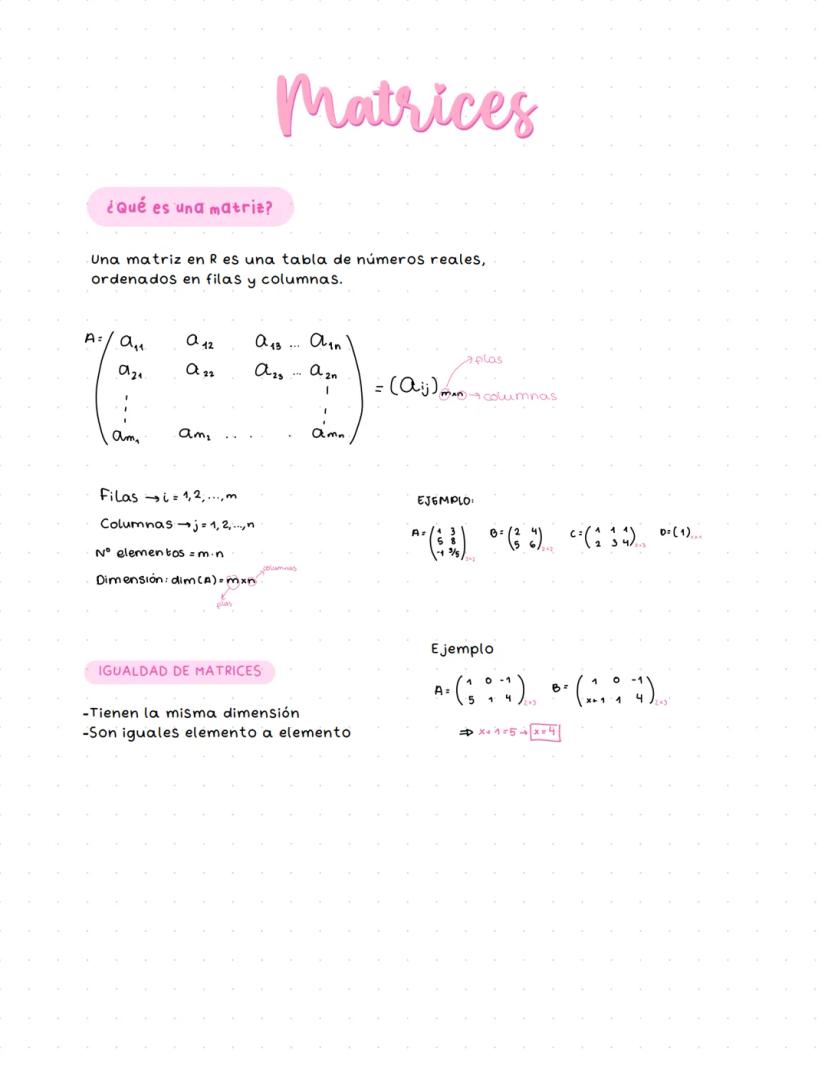 Matrices
¿Qué es una matriz?
Una matriz en R es una tabla de números reales,
ordenados en filas y columnas.
A = ( a₁₁ a₁₂ a₁₃ ... a₁ₙ
a₂₁ a₂₂ a₂₃ ... a₂ₙ
am₁ am₂ .. . . amn ) = (aij) m×n
filas
→ columnas
Filas → i = 1, 2, ..., m
Columnas → j = 1, 2, ..., n
Nº elementos = m·n
Dimensión: dim(A) = m×n
columnas
filas
EJEMPLO:
A = ( 1 3
5 8
-1 3/5 ) 3×2
B = ( 2 4
5 6 ) 2×2
C = ( 1 1 1
2 3 4 ) 2×3
D = (1) 1×1
IGUALDAD DE MATRICES
-Tienen la misma dimensión
-Son iguales elemento a elemento
Ejemplo
A = ( 1 0 -1
5 1 4 ) 2×3
B = ( 1 0 -1
x+1 1 4 ) 2×3
⇒ x+1=5 → x=4